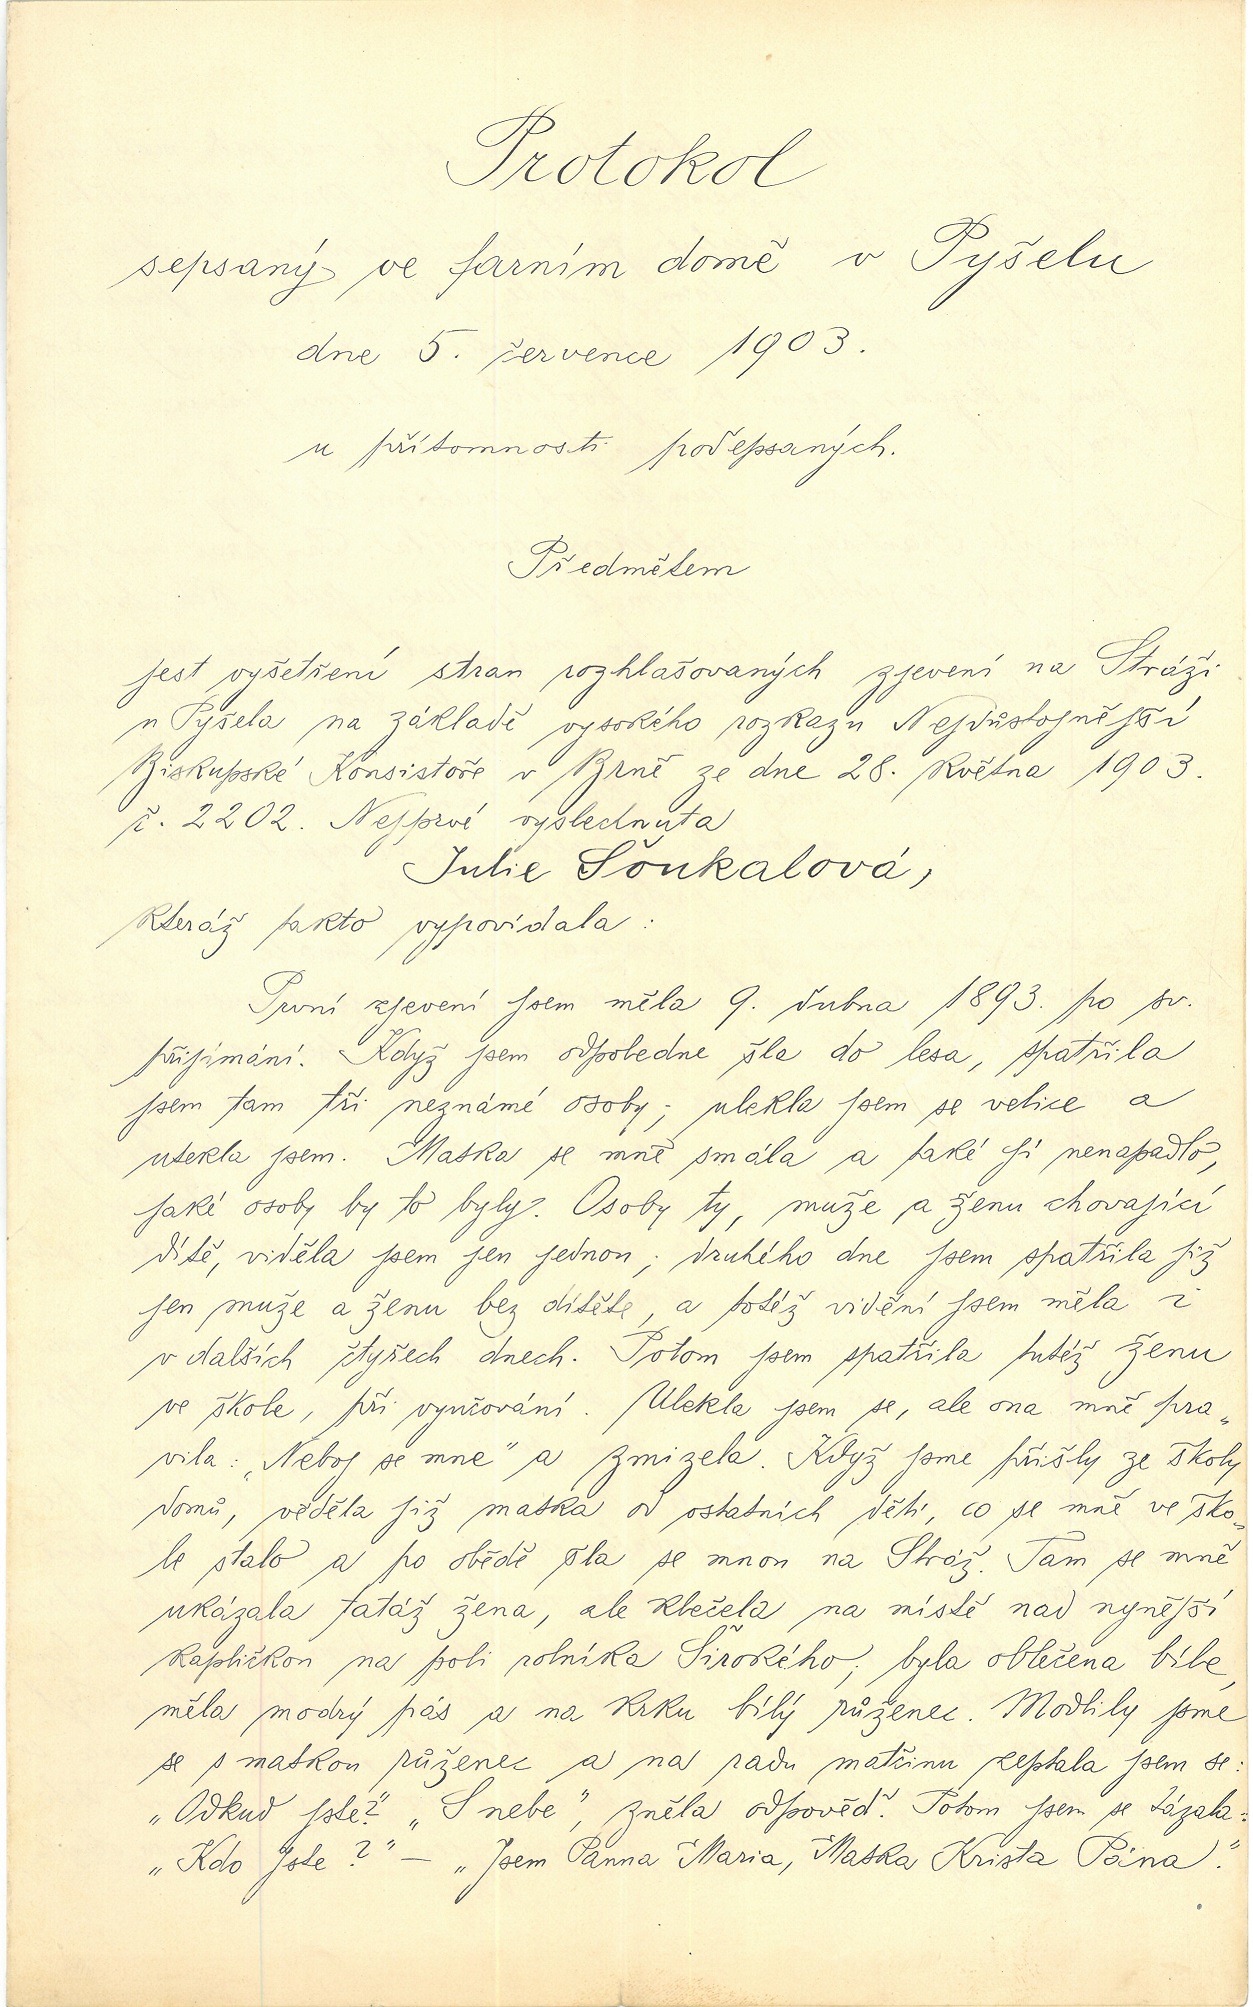 Protokol
sepsaný ve farním domě v Pyšelu
dne 5. července 1903.
u přítomnosti podepsaných.
Předmětem
jest vyšetření stran rozhlašovaných zjevení na Stráži
u Pyšela na základě vysokého rozkazu Nejdůstojnější
Biskupské Konsistoře v Brně ze dne 28. května 1903.
č. 2202. Nejprvé vyslechnuta
Julie Šoukalová,
kteráž takto vypovídala :
První zjevení jsem měla 9. dubna 1893. po sv.
přijímání. Když jsem odpoledne šla do lesa, spatřila
jsem tam tři neznámé osoby; ulekla jsem se velice a
utekla jsem. Matka se mně smála a také jí nenapadlo,
jaké osoby by to byly. Osoby ty, muže a ženu chovající
dítě, viděla jsem jen jednou; druhého dne jsem spatřila již
jen muže a ženu bez dítěte, a totéž vidění jsem měla i
v dalších čtyřech dnech. Potom jsem spatřila tutéž ženu
ve škole, při vyučování. Ulekla jsem se, ale ona mně pra„
vila : „Neboj se mne“ a zmizela. Když jsme přišly ze školy
domů, věděla již matka od ostatních dětí, co se mně ve ško„
le stalo a po obědě šla se mnou na Stráž. Tam se mně
ukázala tatáž žena, ale klečela na místě nad nynější
kapličkou na poli rolníka Širokého; byla oblečena bíle,
měla modrý pás a na krku bílý růženec. Modlily jsme
se s matkou růženec a na radu matčinu zeptala jsem se:
„Odkud jste?“ „S nebe“, zněla odpověď. Potom jsem se tázala:
„Kdo jste ?“ — „Jsem Panna Maria, Matka Krista Pána“.